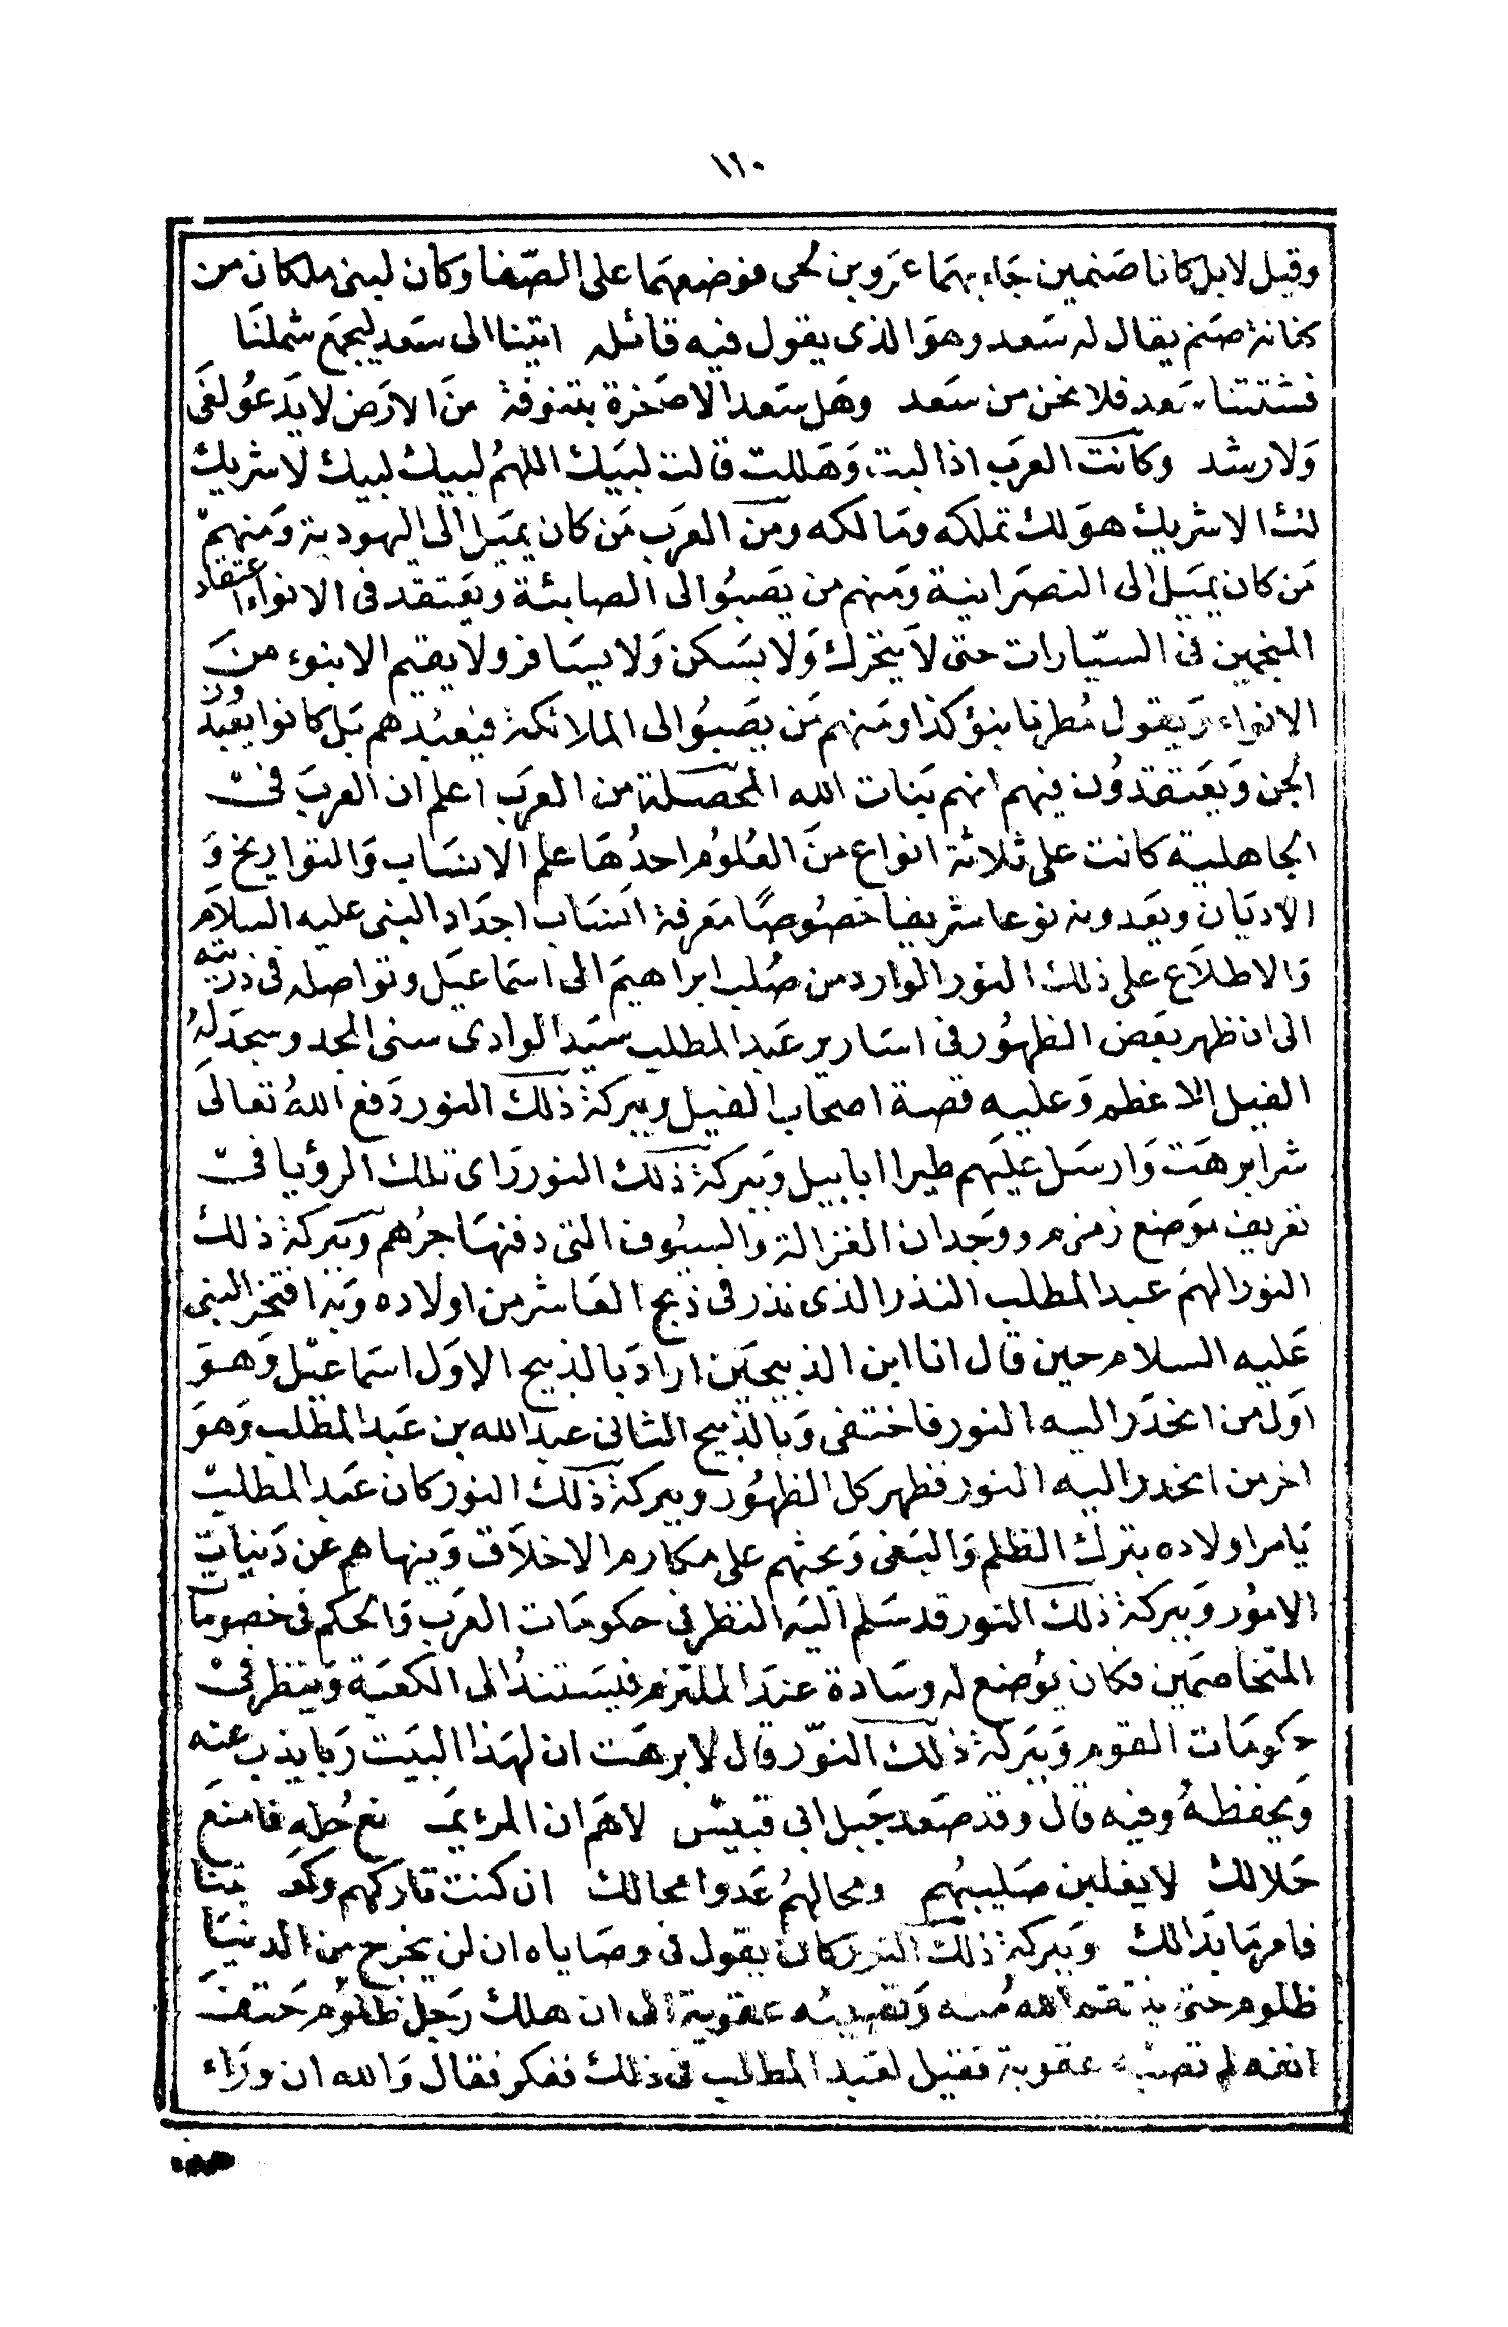 ١١٠
وقيل لا بل كانا صنمين جَاء بهمَا عَمَرو بن لحى فوضعهمَا على الصّفا وكان لبنى ملكان من
كنانة صنم يقال له سَعد وهوَ الذى يقول فيه قائله اتينا الى سَعد ليجمَع شملنَا
فشتتنا سَعد فلا نحن من سَعد وهَل سَعد الا صَخرة بتنوفة منَ الارَض لا يدَعوُ لغَى
وَلا رشد وكانت العرَب اذا لبت وَهَللت قالت لبيَك اللهمُ لبيك لبيك لا شريك
لك الا شريك هوَ لك تملكه ومَا لكه ومن العرَب مَن كان يميَل الى اليهودية وَمنهم
مَن كان يميَل الى النصرَانية وَمنهم من يصَبوُ الى الصابئة ويَعتقد فى الانواء اعتقاد
المنجمين فى السيّارات حتى لا يتحرك وَلا يسَكن وَلا يسَافر ولا يقيم الا بنوء منَ
الانواء وَيقول مُطرنا بنؤ كذا ومَنهم مَن يصَبوُ الى الملائكة فيعبُدهم بَل كانوا يعُبدون
الجن وَيعَتقدوُن فيهم انهم بَنات الله المحصلة من العرَب اعلم ان العربَ فى
الجاهلية كانت على ثلاثة انواع منَ العُلوُم احدُهَا علم الانسَاب وَالتواريخ وَ
الاديَان ويعَدونه نوعا شريفا خصُوصًا مَعرفة انسَاب اجدَاد النبى عليه السلام
وَالاطلاَع على ذلك النور الوارد من صُلب ابراهيمَ الى اسمَاعيَل وتواصله فى ذريته
الى ان ظهر بعَض الظهُور فى اسَارير عَبد المطلب سيَد الوادى سنى المجد وسجدَ لهُ
الفيل الاعظم وَعليه قصة اصحاب الفيل وببركة ذلك النور دَفع اللهُ تعالى
شر ابرهَت وَارسَل عليَهم طيرا ابابيل وَببركة ذلك النور رَاى تلك الرؤيا فى
تعريف موَضع زمزم ووَجدان الغزالة والسيُوف التى دفنهَا جرُهم وَببركة ذلك
النور الهمَ عبد المطلب النذر الذى نذر فى ذبح العَاشر من اولاده وَبه افتخر النبى
عَليه السلام حين قال انا ابن الذبيحَين ارادَ بالذبيح الاوَل اسمَاعيل وَهوَ
اوَل من انحدَر اليه النور فاختفى وَبالذبيح الثانى عبد الله بن عَبد المطلب وَهوَ
اخر من انحدر اليه النور فظهر كل الظهُور وببركة ذلك النور كان عَبد المطلب
يَامر اولاده بترك الظلم وَالبَغى وَيحثهم على مكارم الاخلاَق وَينهاهم عن دَنيات
الامُور وَببركة ذلك النور قد سَلم اليَه النظر فى حكومَات العرَب وَالحكم فى خصومات
المتخاصمَين فكان يوُضع له وسَادة عندَ الملتزم فيسَتندُ الى الكعَبة وَينظر فى
حكومَات القوم وَببَركة ذلك النوّر قال لابرهَت ان لهَذا البيَت رَبا يذب عنه
وَيحفظهُ وفيه قال وقد صَعد جَبل ابى قبيس لاهَم ان المرء يمَـ نع حُله فامنعَ
حَلالك لا يغلبن صَليبُهم ومحالهمُ عَدوا محالك ان كنت تاركهم وكعَـ بتنا
فامر مَا بدَالك وَببركة ذلك النور كان يقول فى وصَاياه ان لن يخرج من الدنيَا
ظلوم حتى ينتقم الله منه وَتصيبه عقوبة الى ان هلك رَجل ظلوُم حَتفَ
انفه لم تصبه عقوبة فقيل لعَبد المطلب فى ذلك ففكر فقال وَالله ان ورَاء